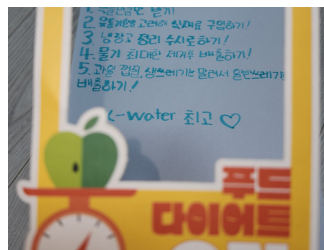 2. 유통기한 고려해 식재료 구입하기!
3. 냉장고 정리 수시로하기!
4. 물기 최대한 제거후 배출하기!
5. 과일 껍질, 생쓰레기는 말려서 일반쓰레기
배출하기!
K-water 최고 ♡
푸드
다이어트